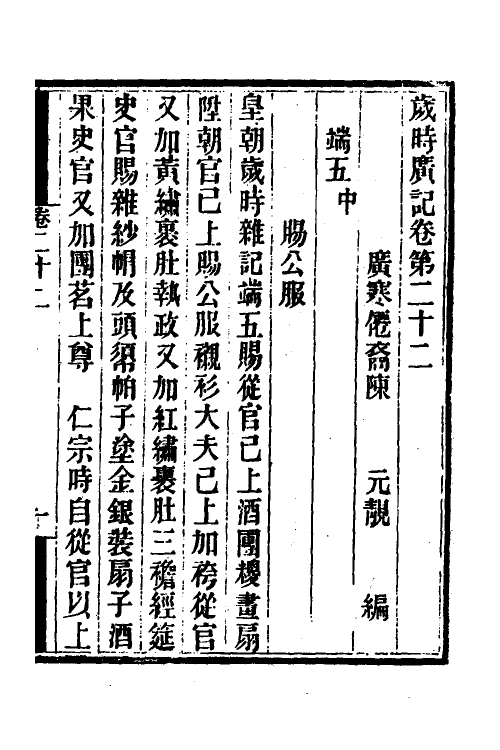 歲時廣記卷第二十二
廣寒僊裔陳 元靚 編
端五中
賜公服
皇朝歲時雜記端五賜從官已上酒團糉畫扇
陞朝官已上賜公服襯衫大夫已上加袴從官
又加黃繡裹肚執政又加紅繡裹肚三襜經筵
史官賜雜紗帽及頭𢄼帕子塗金銀裝扇子酒
果史官又加團茗上尊 仁宗時自從官以上
卷二十二
一